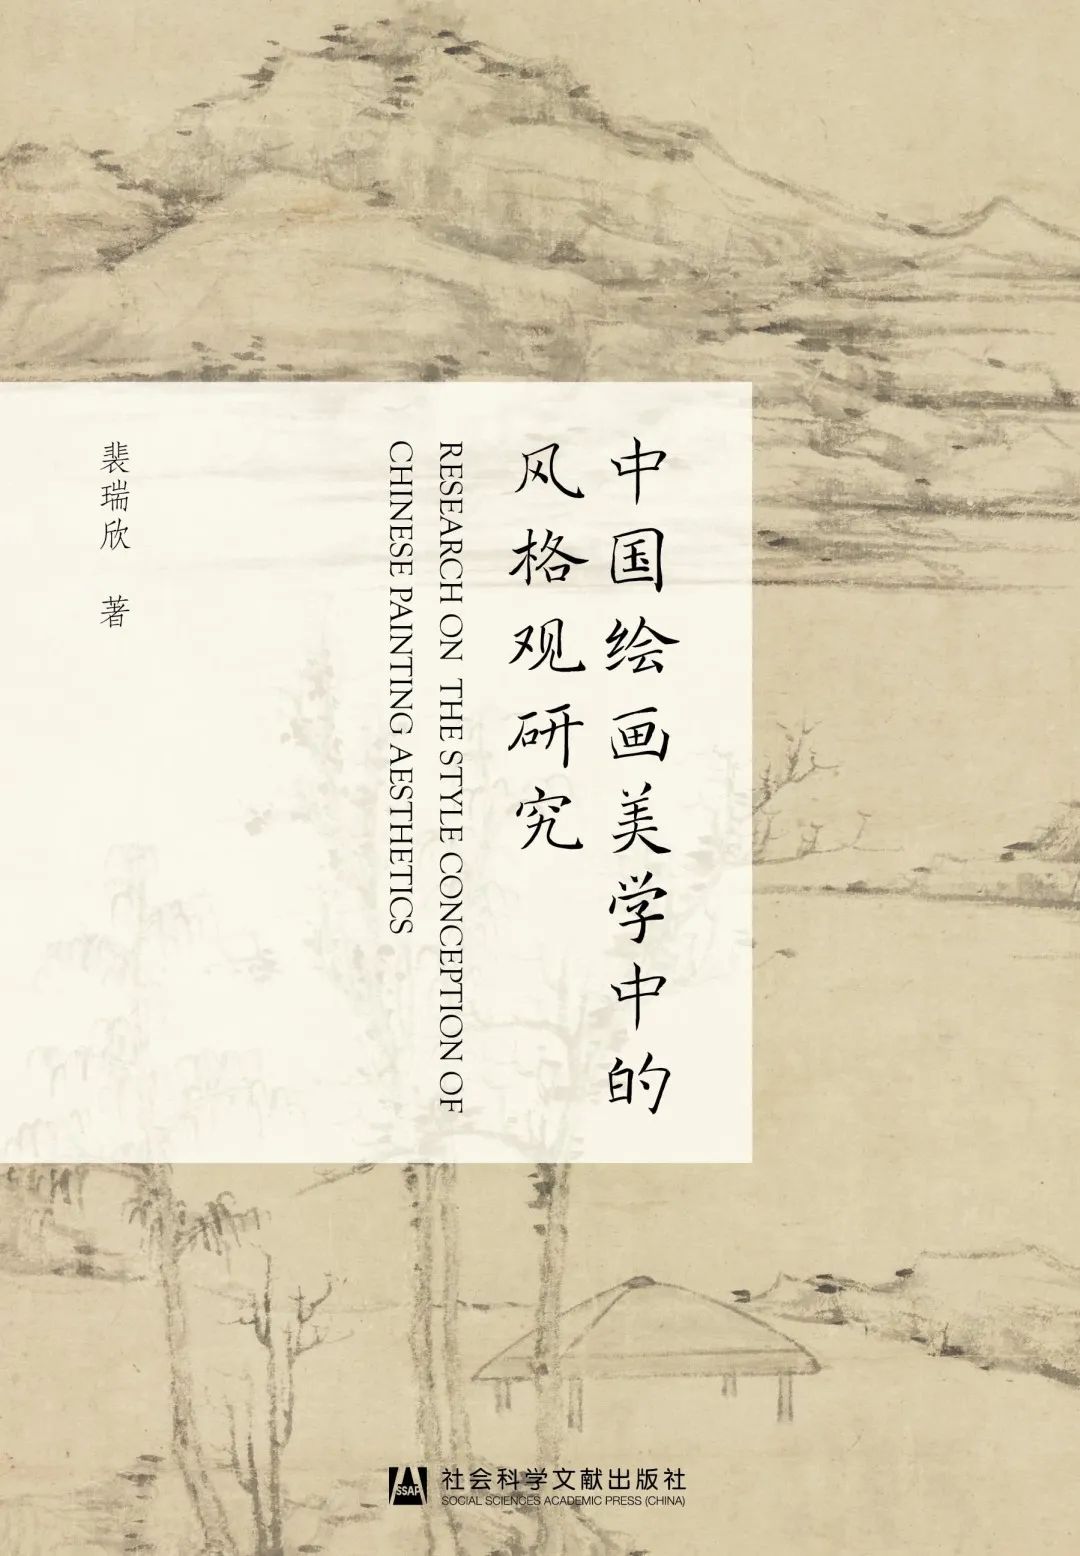 中国绘画美学中的
风格观研究
RESEARCH ON THE STYLE CONCEPTION OF
CHINESE PAINTING AESTHETICS
裴瑞欣 著
SSAP
社会科学文献出版社
SOCIAL SCIENCES ACADEMIC PRESS (CHINA)